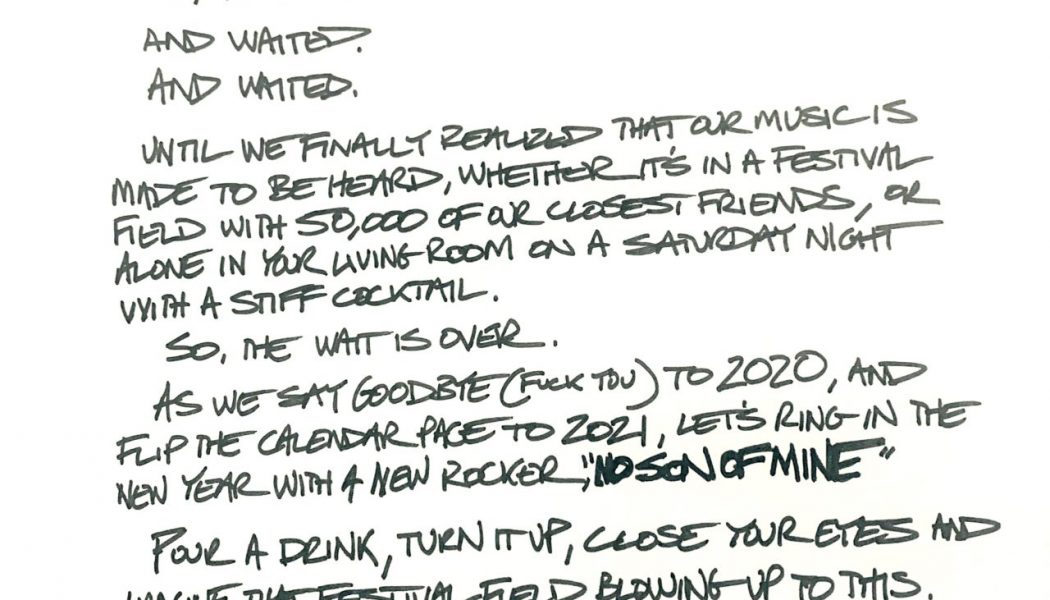 AND WAITED.
AND WAITED.
UNTIL WE FINALLY REALIZED THAT OUR MUSIC IS
MADE TO BE HEARD, WHETHER IT'S IN A FESTIVAL
FIELD WITH 50,000 OF OUR CLOSEST FRIENDS, OR
ALONE IN YOUR LIVING ROOM ON A SATURDAY NIGHT
WITH A STIFF COCKTAIL.
SO, THE WAIT IS OVER.
AS WE SAY GOODBYE (FUCK YOU) TO 2020, AND
FLIP THE CALENDAR PAGE TO 2021, LET'S RING IN THE
NEW YEAR WITH A NEW ROCKER, "NO SON OF MINE"
POUR A DRINK, TURN IT UP, CLOSE YOUR EYES AND
IMAGINE THAT FESTIVAL FIELD BLOWING UP TO THIS.